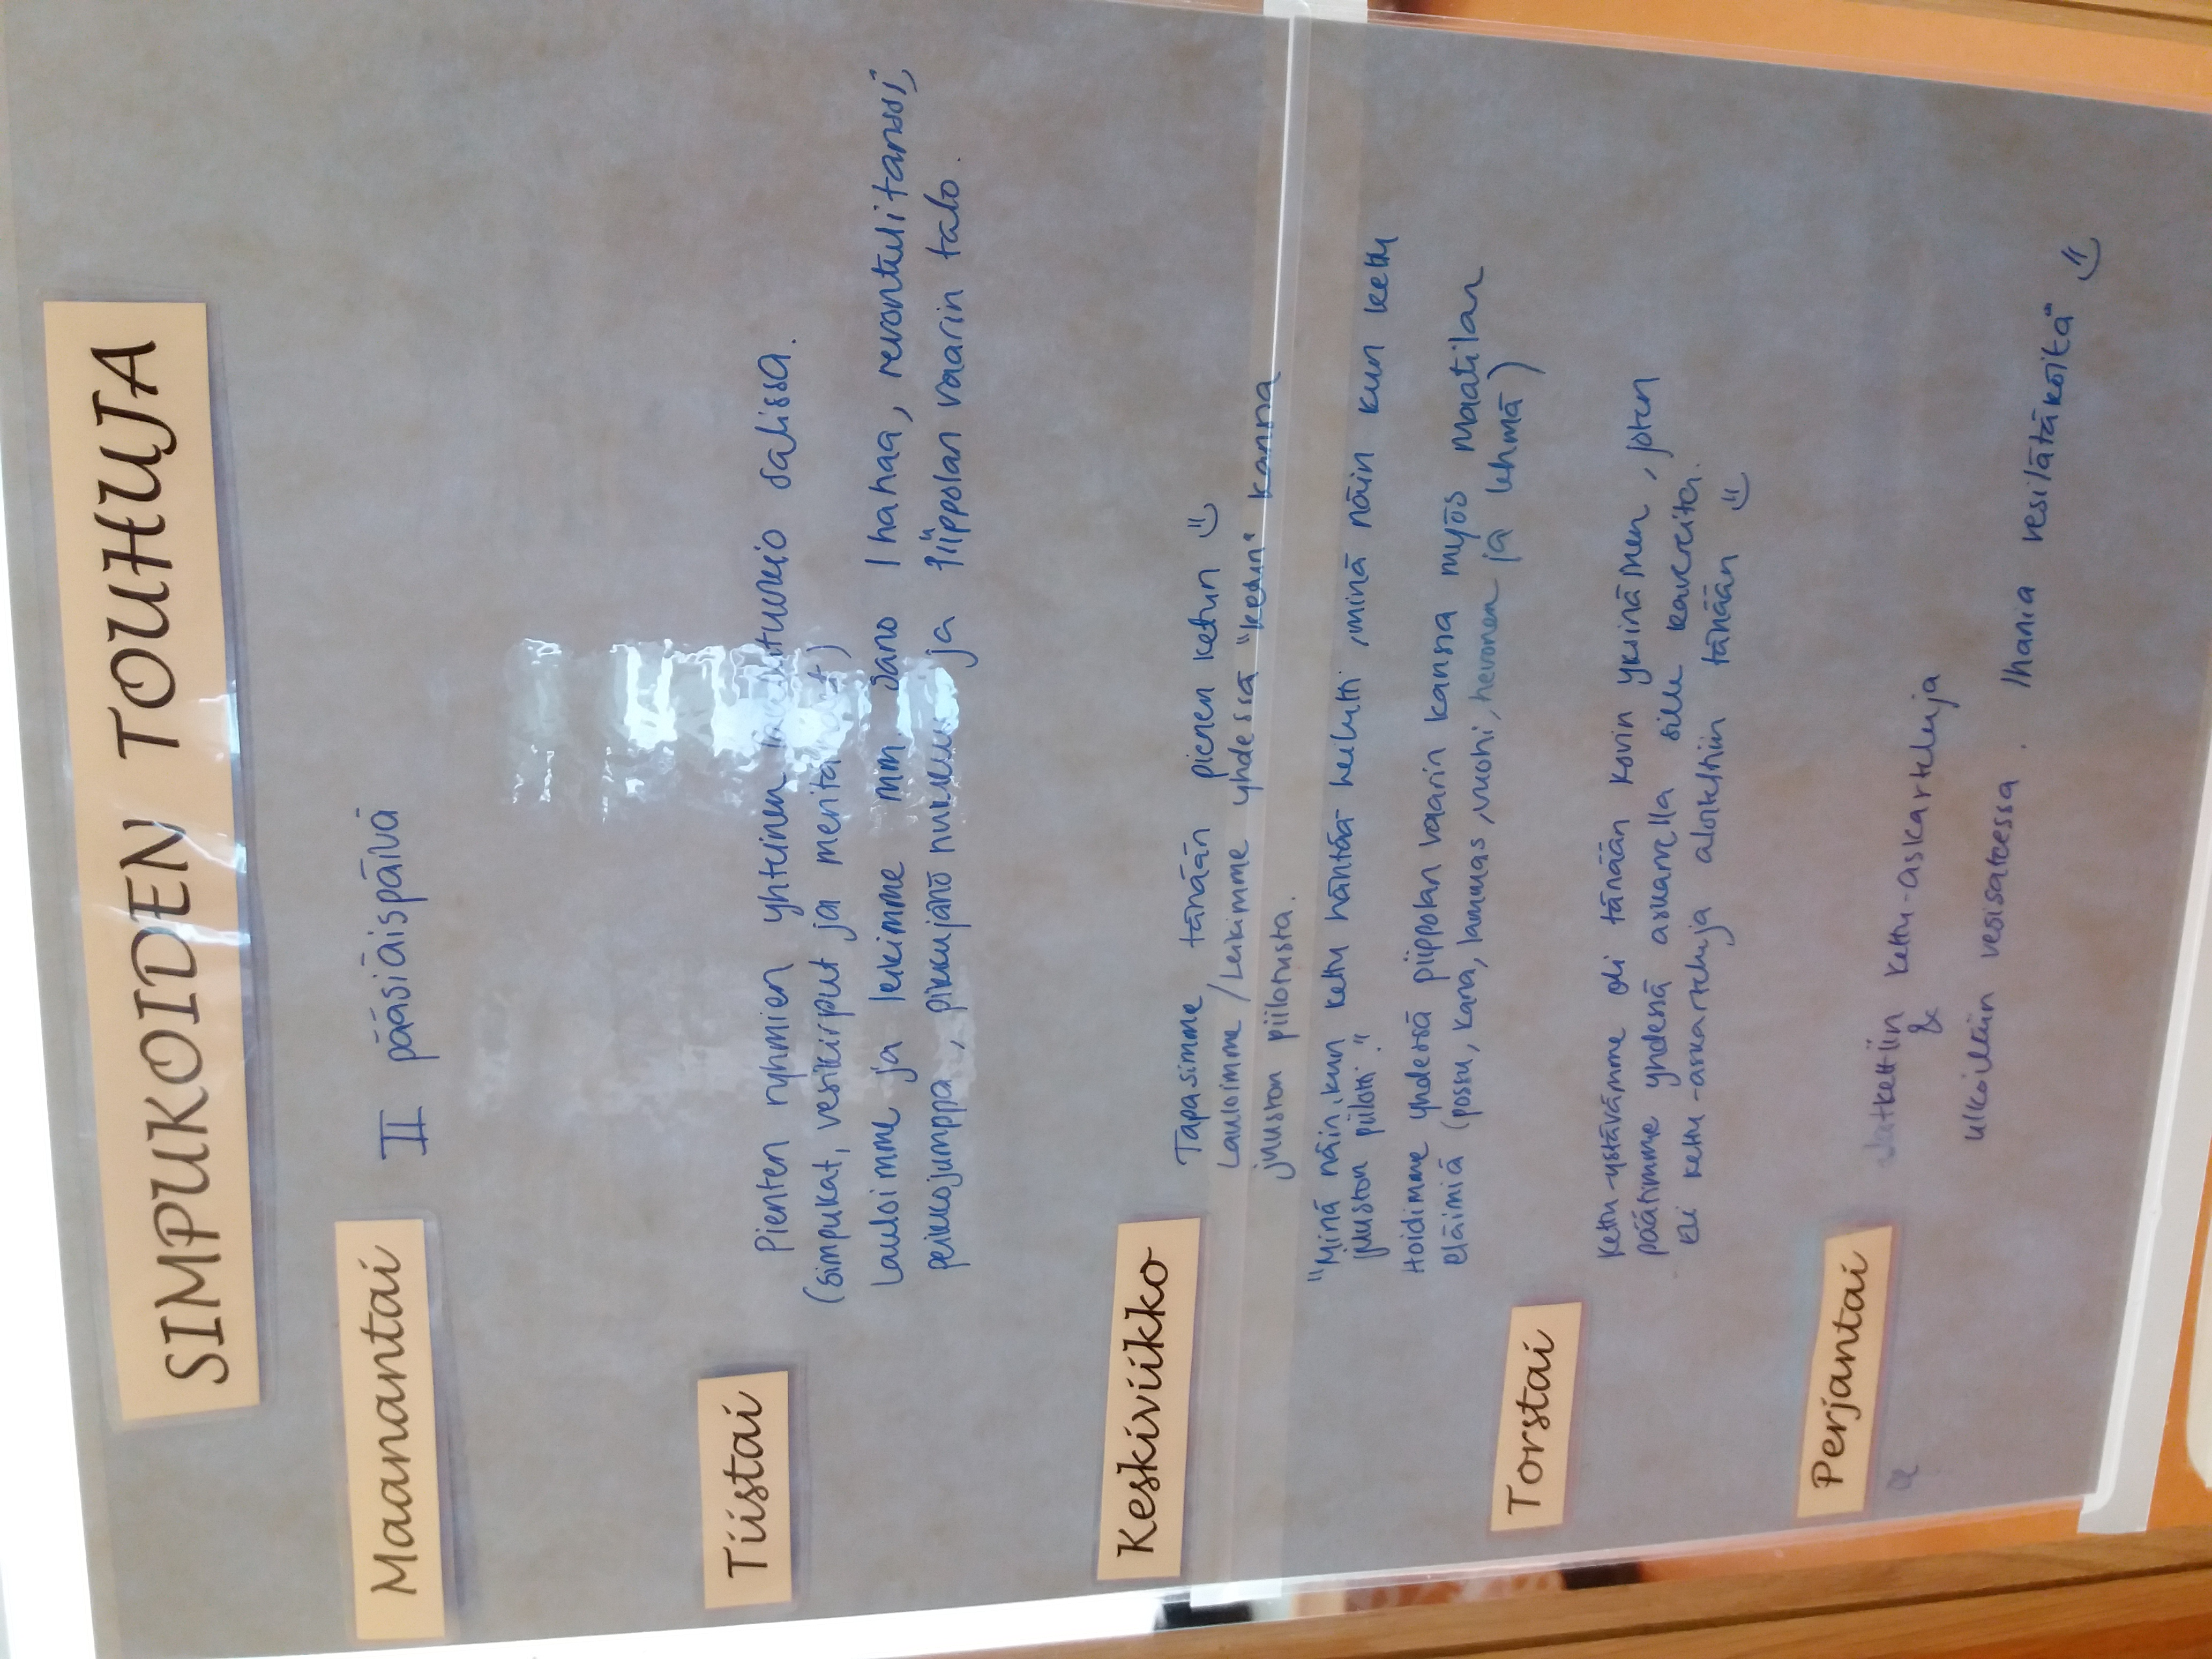 SIMPUKOIDEN TOUHUJA
Maanantai
II pääsiäispäivä
Tiistai
Pienten ryhmien yhteinen salissa.
(simpukat, vesikirput ja
Lauloimme ja leikimme mm. Sano Ihahaa, revontulitanssi,
peikkojumppa, pikkujänö ja Piippolan vaarin talo.
Keskiviikko
Tapasimme tänään pienen ketun
Lauloimme/Leikimme yhdessä "ketun" kanssa
juuston piilotusta.
"Minä näin, kun kettu häntää heilutti, minä näin kun kettu
juuston piilotti."
Hoidimme yhdessä piippolan vaarin kanssa myös Maatilan
eläimiä (possu, kana, lammas, vuohi, hevonen ja lehmä)
Torstai
Kettu-ystävämme oli tänään kovin yksinäinen, joten
päätimme yhdessä askarrella sille kavereita.
Eli kettu-askarteluja aloiteltiin tänään
Perjantai
Jatkettiin kettu-askarteluja
&
ulkoiltiin vesisateessa. Ihania vesilätäköitä"